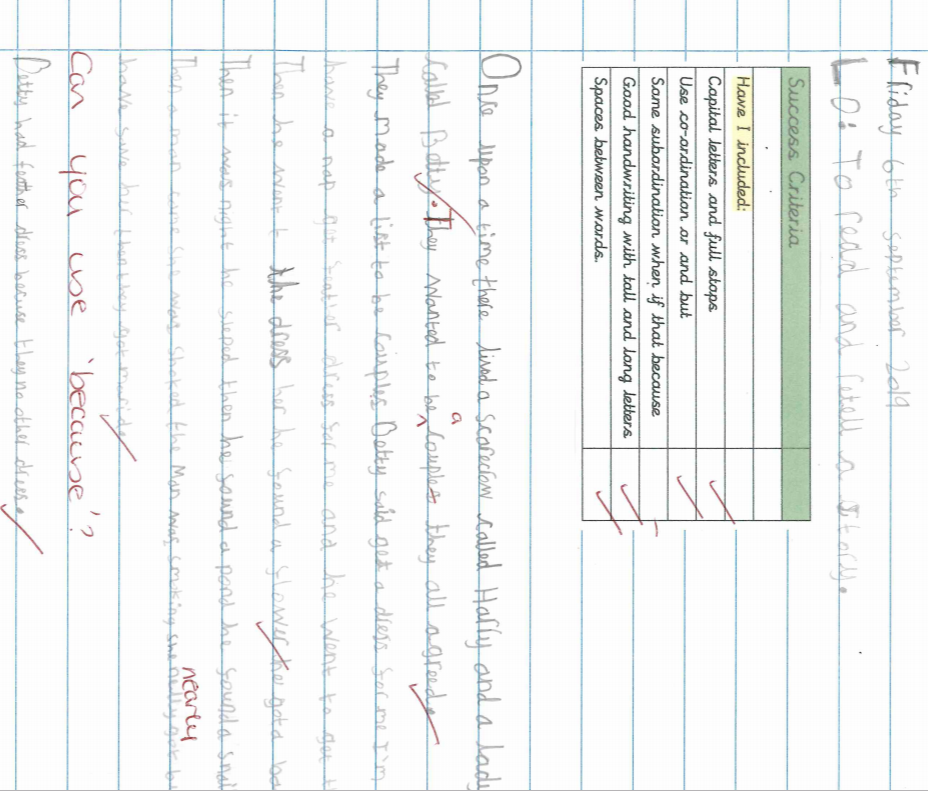 Friday 6th september 2019
LO: To read and retell a story.
Success Criteria
Have I included:
Capital letters and full stops
Use co-ordination or and but
Some subordination when if that because
Good handwriting with tall and long letters
Spaces between words.
Once upon a time there lived a scarecrow called Harry and a lady
called Betty. They wanted to be a couple they all agreed.
They made a list to be couples Betty said get a dress for me I'm
have a nap get feather dress for me and he went to get t
Then he went the dress her he found a flower he got a ba
Then it was night he sleped then he found a pond he found a snai
Then a man came she was shoked the Man was smoking she nelly got bu
nearly
have save her then they got marid.
Can you use 'because'?
Betty had feather dress because they no other drees.